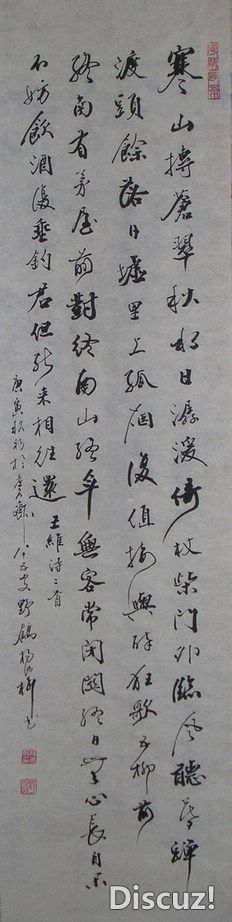 寒山轉蒼翠秋水日潺湲倚杖柴門外臨風聽暮蟬
渡頭餘落日墟里上孤煙復值接輿醉狂歌五柳前
終南有茅屋前對終南山終年無客常閉關終日無心長自閑
不妨飲酒復垂釣君但能來相往還 王維詩二首
庚寅秋初於 叟野鶴楊 柳書
Discuz!